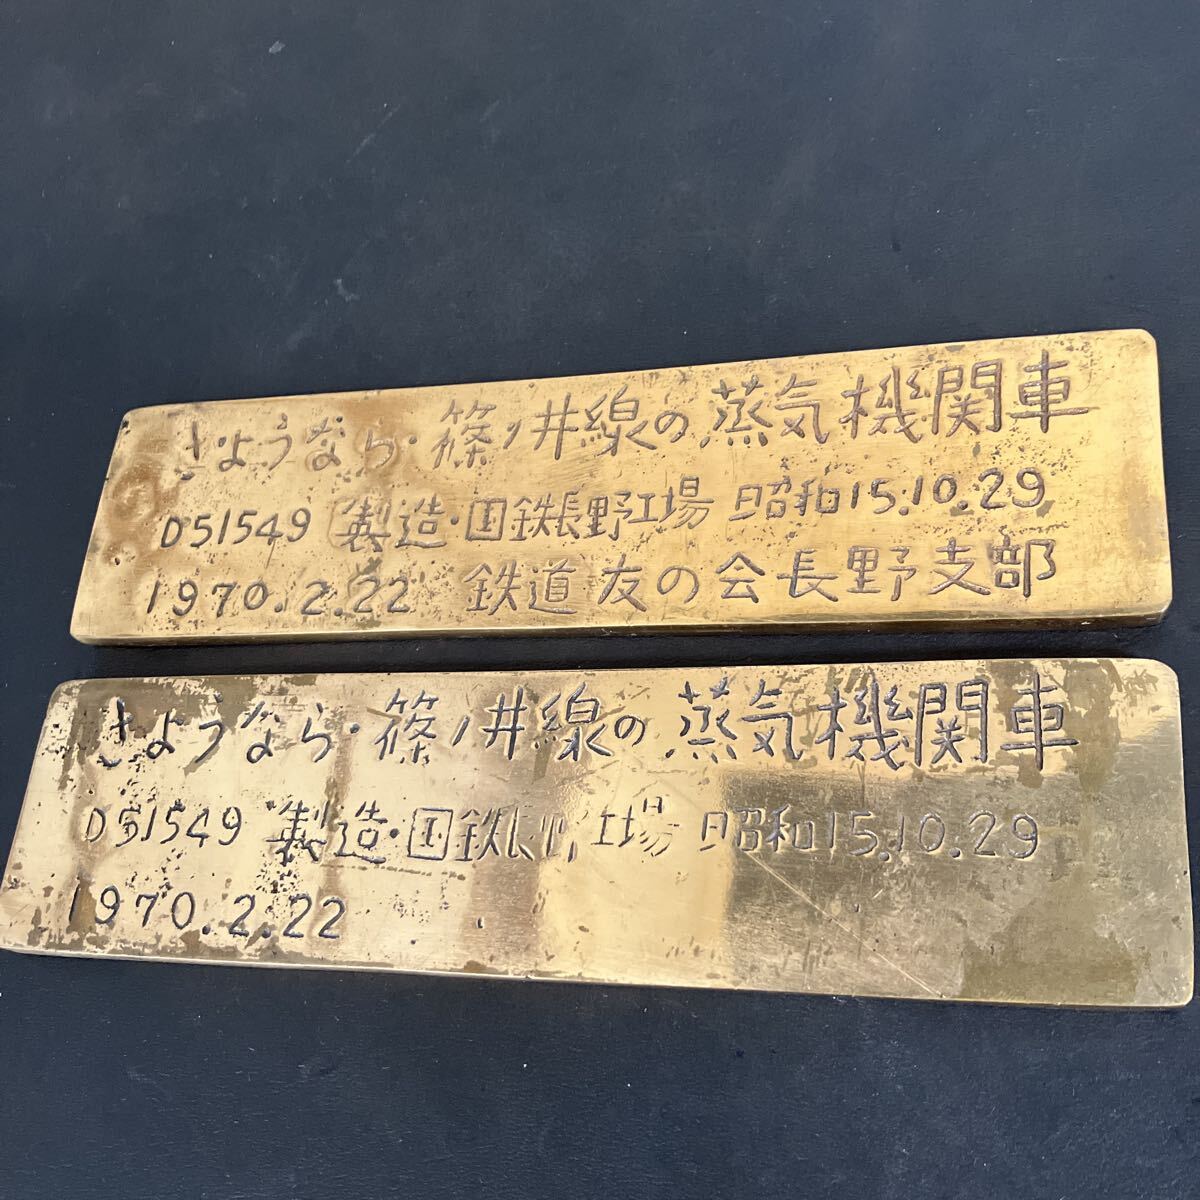 さようなら・篠ノ井線の蒸気機関車
D51549 製造・国鉄長野工場 昭和15.10.29
1970.2.22 鉄道友の会長野支部
さようなら・篠ノ井線の蒸気機関車
D51549 製造・国鉄長野工場 昭和15.10.29
1970.2.22